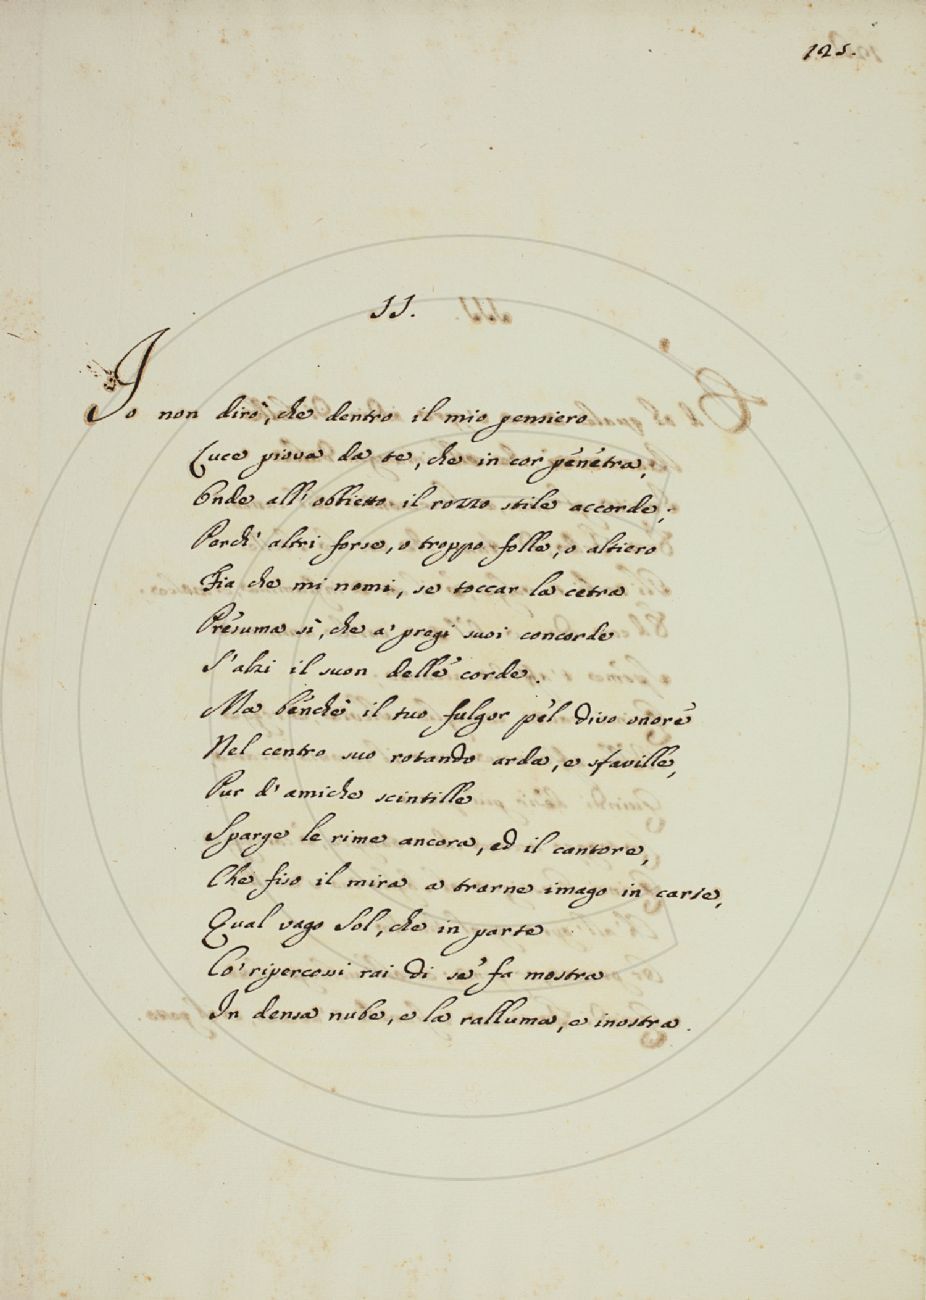 125.
II.
Io non dirò, che dentro il mio pensiero
Luce piova da te, che in cor penetra,
Onde all' obbietto il rozzo stile accorde;
Perch' altri forse, o troppo folle, o altiero
Fia che mi nomi, se toccar la cetra
Presuma sì, che a' pregi suoi concorde
S'alzi il suon delle corde.
Ma benchè il tuo fulgor pel divo onore
Nel centro suo rotando arda, e sfaville,
Pur d'amiche scintille
Sparge le rime ancora, ed il cantore,
Che fiso il mira a trarne imago in carte,
Qual vago Sol, che in parte
Co' ripercossi rai di se' fa mostra
In densa nube, e la ralluma, e inostra.